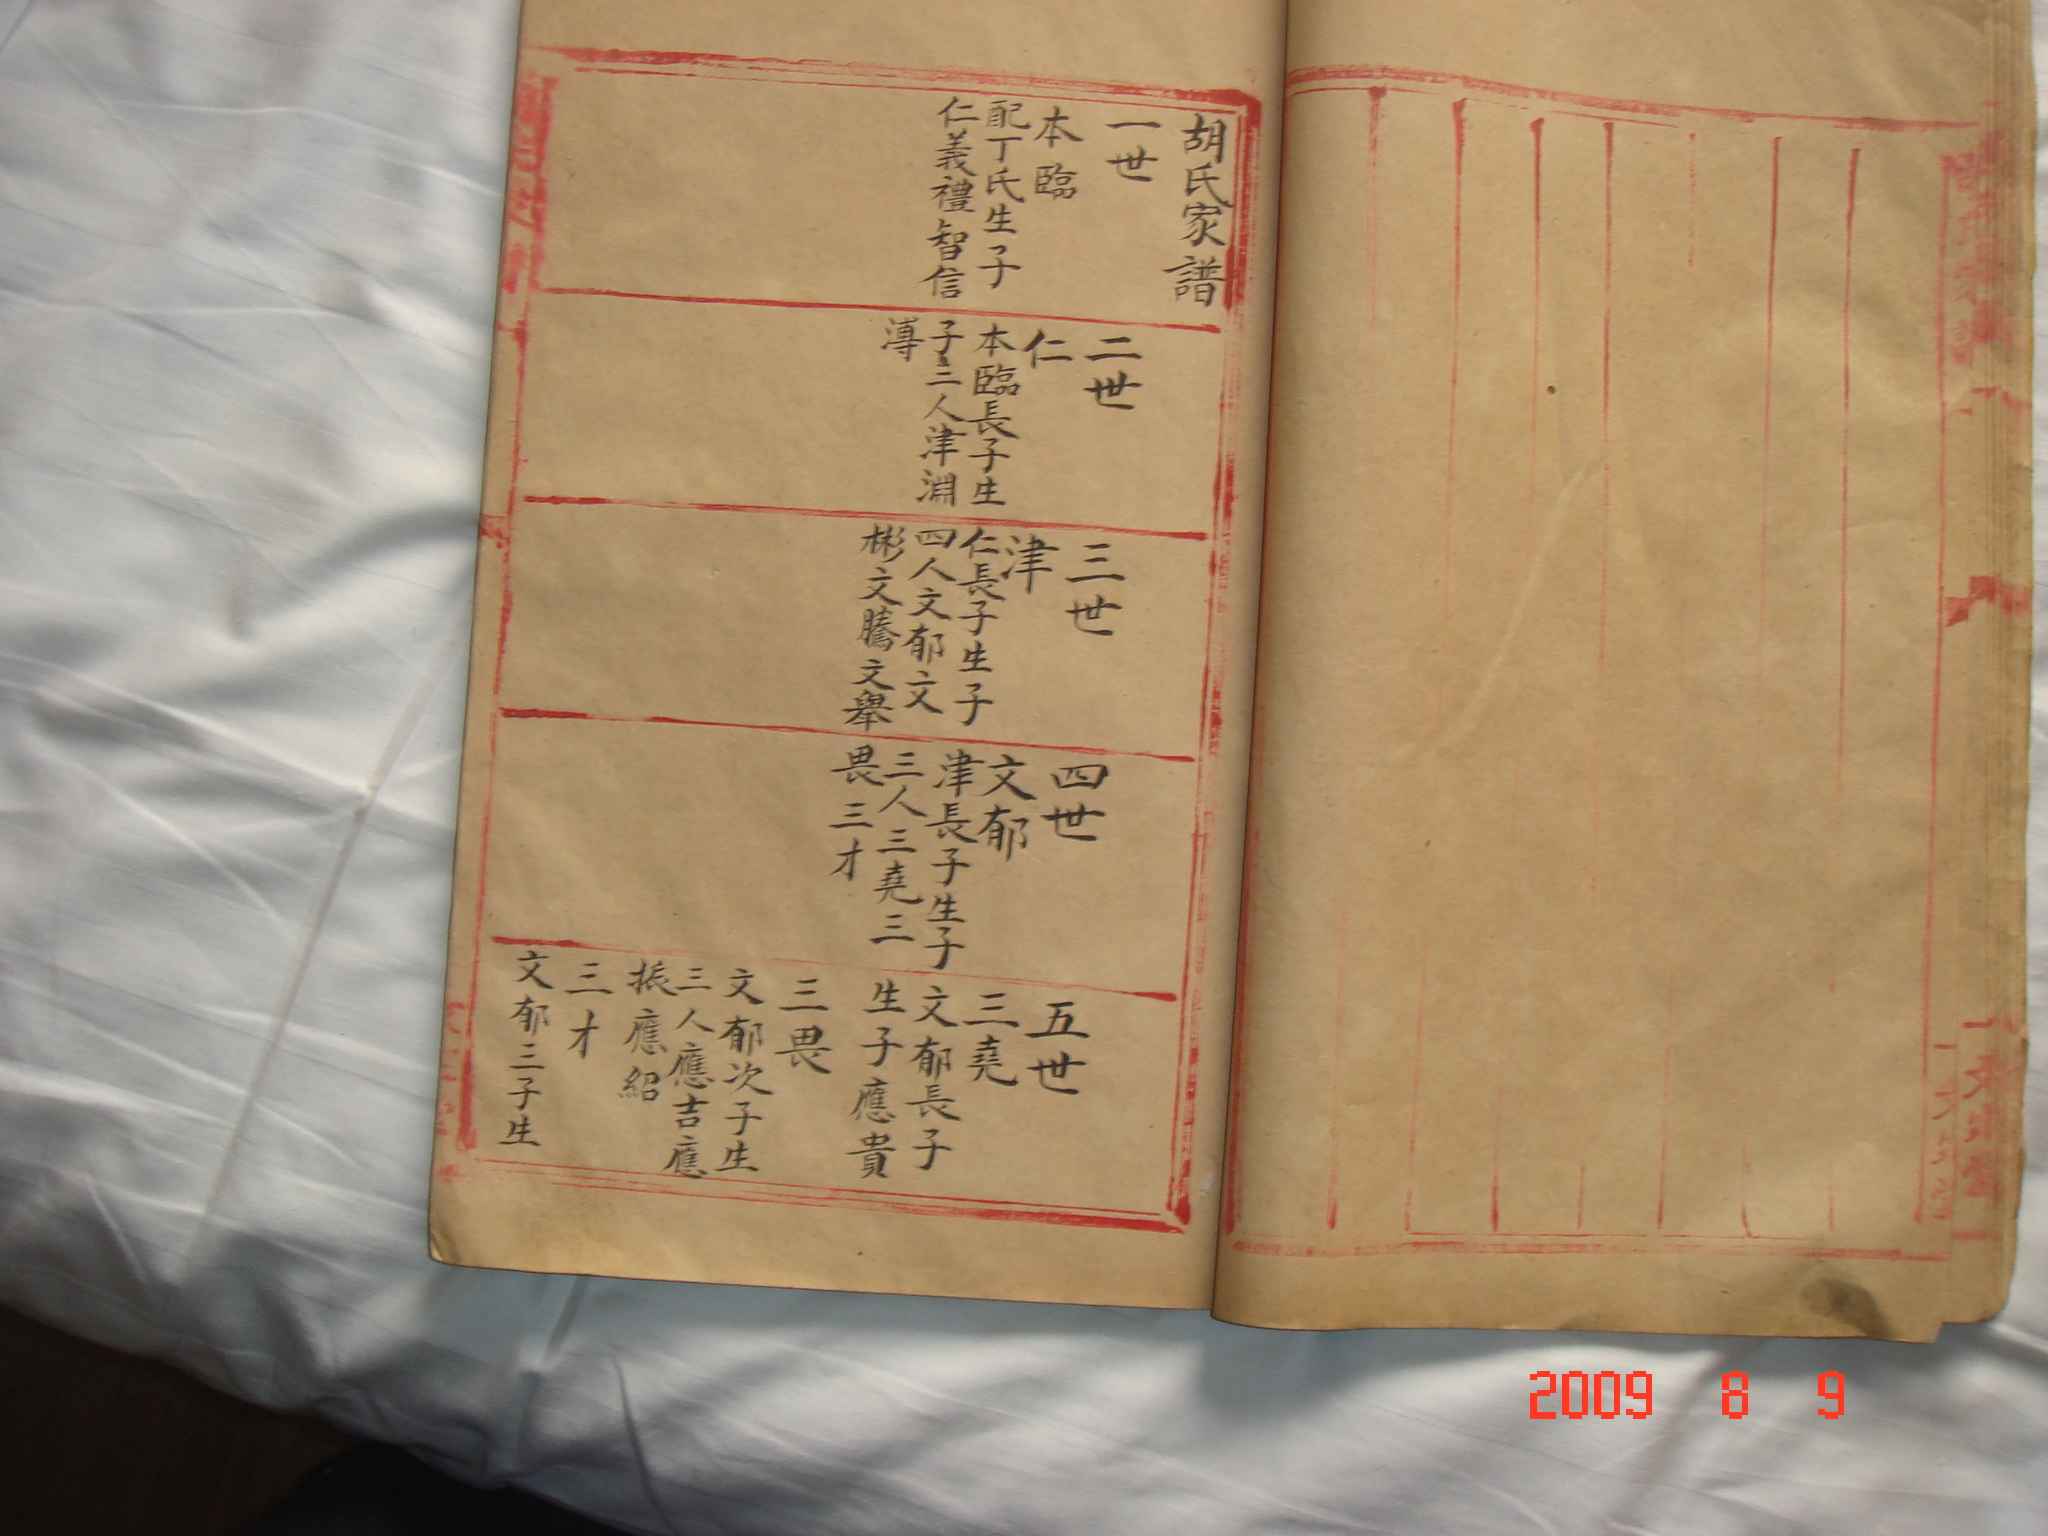 胡氏家譜
一世
本臨
配丁氏生子
仁義禮智信
二世
仁
本臨長子生
子三人津淵
溥
三世
津
仁長子生子
四人文郁文
彬文騰文舉
四世
文郁
津長子生子
三人三堯三
畏三才
五世
三堯
文郁長子
生子應貴
三畏
文郁次子生
三人應吉應
振應紹
三才
文郁三子生
2009 8 9